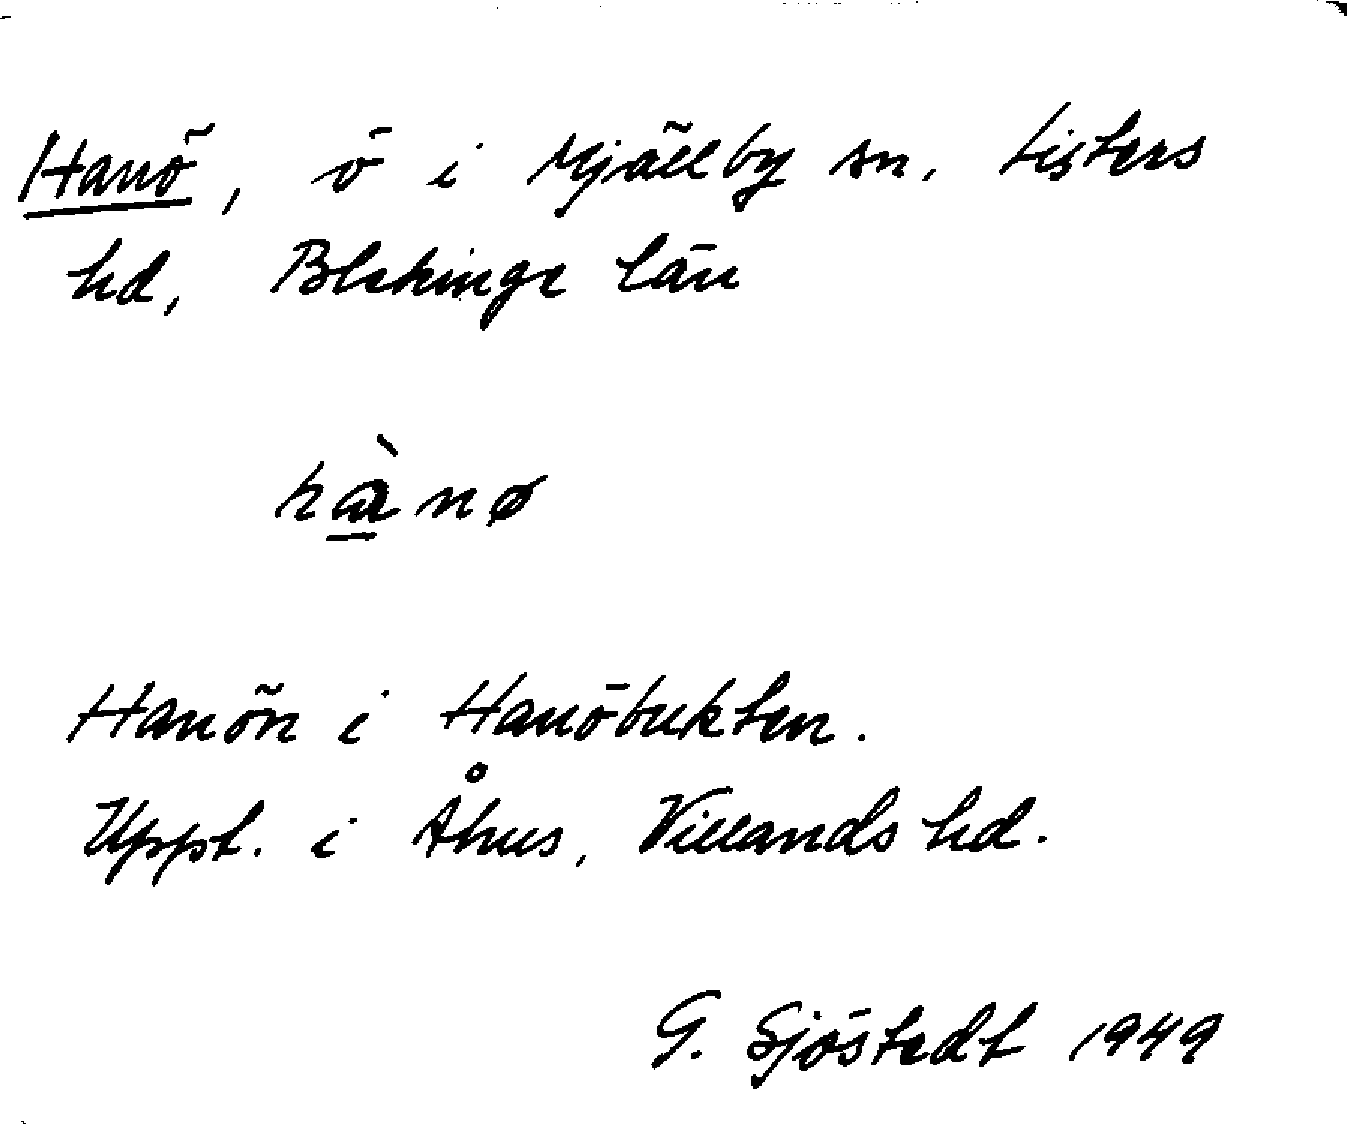 Hanö, ö i Mjällby sn, Listers
hd, Blekinge län
hànø
Hanön i Hanöbukten.
Uppt. i Åhus, Villands hd.
G. Sjöstedt 1949